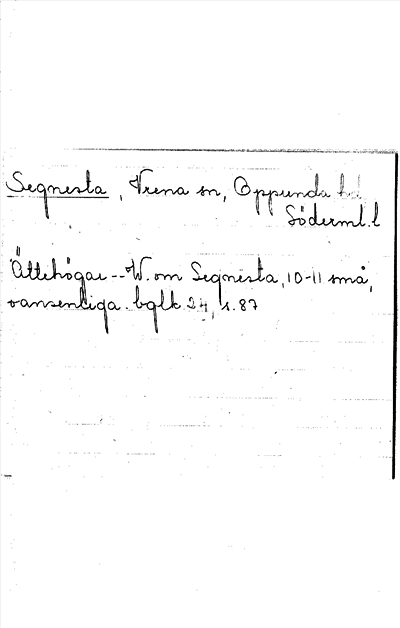 Segnesta, Vrena sn, Oppunda hd
Söderml. l
Ättehögar -- W. om Segnesta, 10-11 små,
oansenliga. bglk 24, s. 87